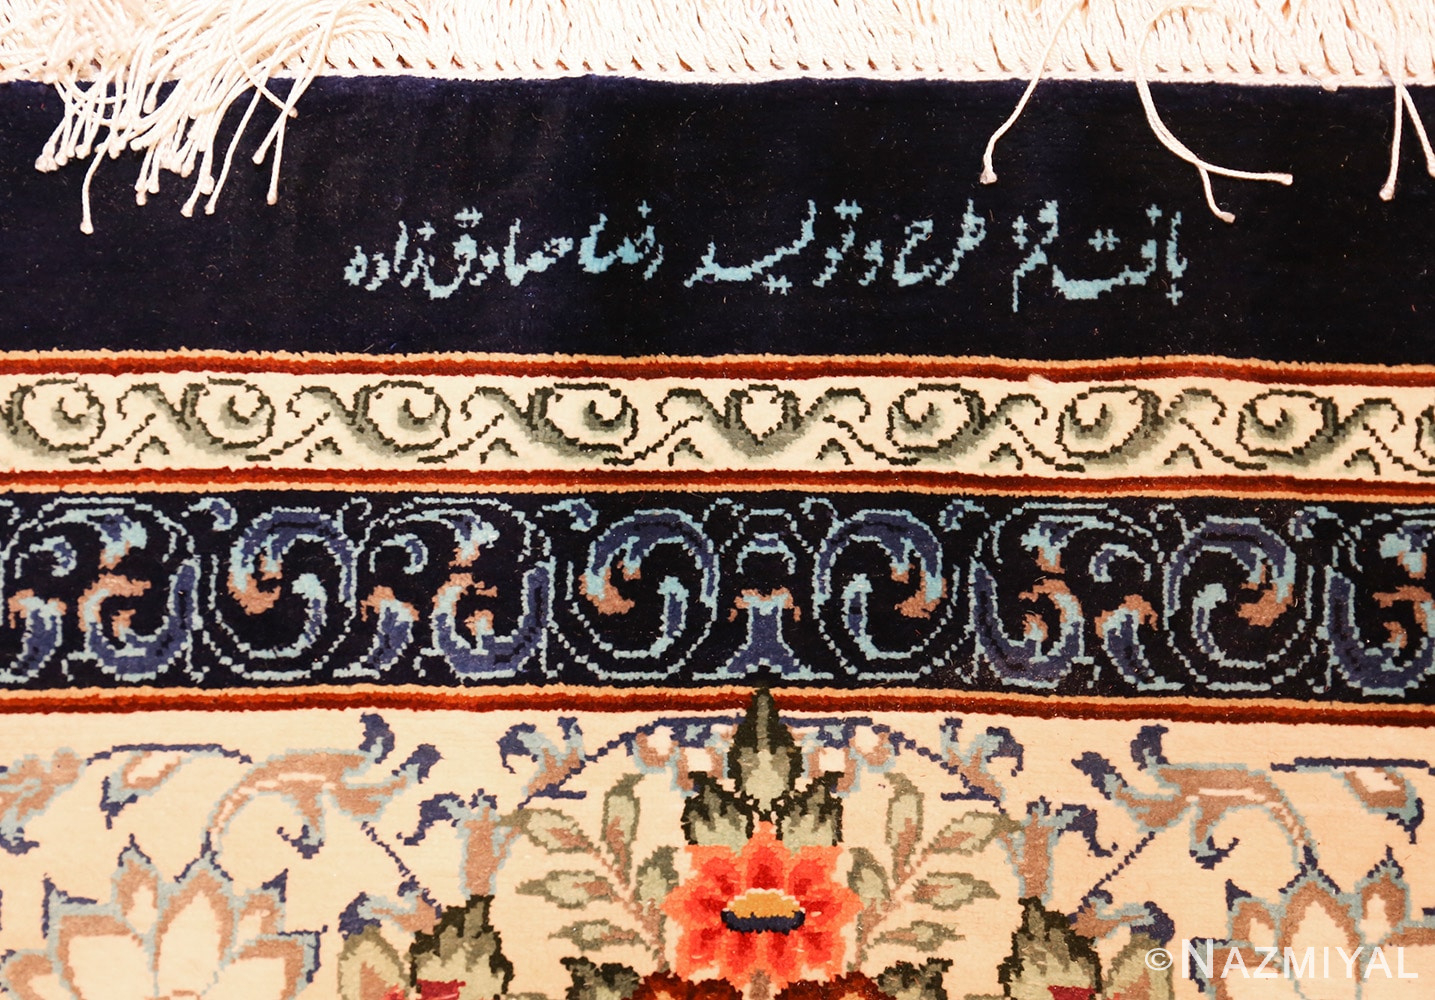 بافت قم طرح و تولید رضا صادق زاده
© NAZMIYAL